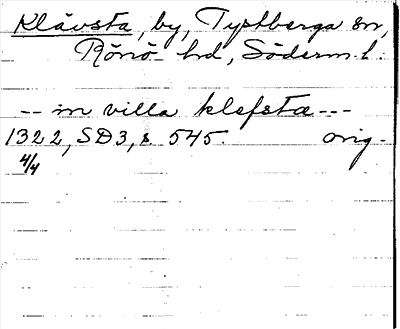 Klävsta, by, Tystberga sn,
Rönö hd, Söderm. l.
-- in villa klefstæ ---
1322, SD3, s. 545. orig.
4/4